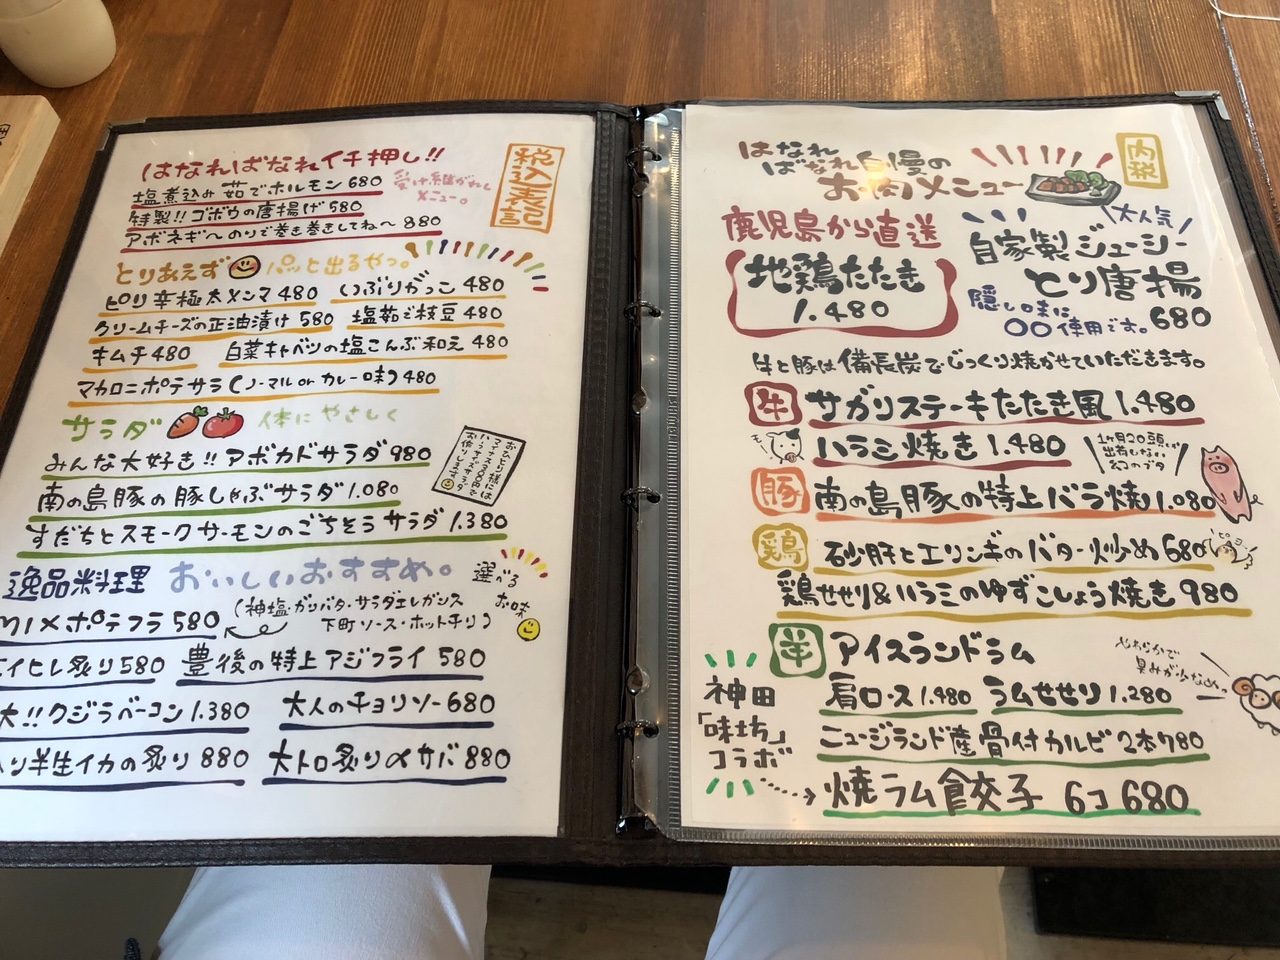 はなればなれイチ押し!!
税込表記
塩煮込み 茹でホルモン 680
受け継がれしメニュー。
特製!! ゴボウの唐揚げ 580
アボネギ〜のりで巻き巻きしてね〜 880
とりあえず パッと出るやつ。
ピリ辛極太メンマ 480 いぶりがっこ 480
クリームチーズの正油漬け 580 塩茹で枝豆 480
キムチ 480 白菜キャベツの塩こんぶ和え 480
マカロニポテサラ(ノーマル or カレー味) 480
サラダ 体にやさしく
みんな大好き!! アボカドサラダ 980
おひとり様には
マイナス300円で
ハーフサイズサラダ
お作りします
南の島豚の豚しゃぶサラダ 1.080
すだちとスモークサーモンのごちそうサラダ 1.380
逸品料理 おいしいおすすめ。
選べるお味
MIXポテフラ 580
(神塩・ガリバタ・サラダエレガンス
下町ソース・ホットチリ)
エイヒレ炙り 580 豊後の特上アジフライ 580
大!! クジラベーコン 1.380 大人のチョリソー 680
半生イカの炙り 880 大トロ炙り〆サバ 880
はなればなれ自慢の
お肉メニュー
内税
鹿児島から直送
地鶏たたき
1.480
大人気
自家製ジューシー
とり唐揚
680
隠し味に
○○使用です。
牛と豚は備長炭でじっくり焼かせていただきます。
牛 サガリステーキたたき風 1.480
ハラミ焼き 1.480
1ヶ月20頭しか
出荷しない
幻のブタ
豚 南の島豚の特上バラ焼 1.080
鶏 砂肝とエリンギのバター炒め 680
ピヨ
鶏せせり&ハラミのゆずこしょう焼き 980
羊 アイスランドラム
やわらかで
臭みが少なめ。
肩ロース 1.480 ラムせせり 1.280
ニュージランド産骨付カルビ 2本 780
神田
「味坊」
コラボ
焼ラム餃子 6コ 680